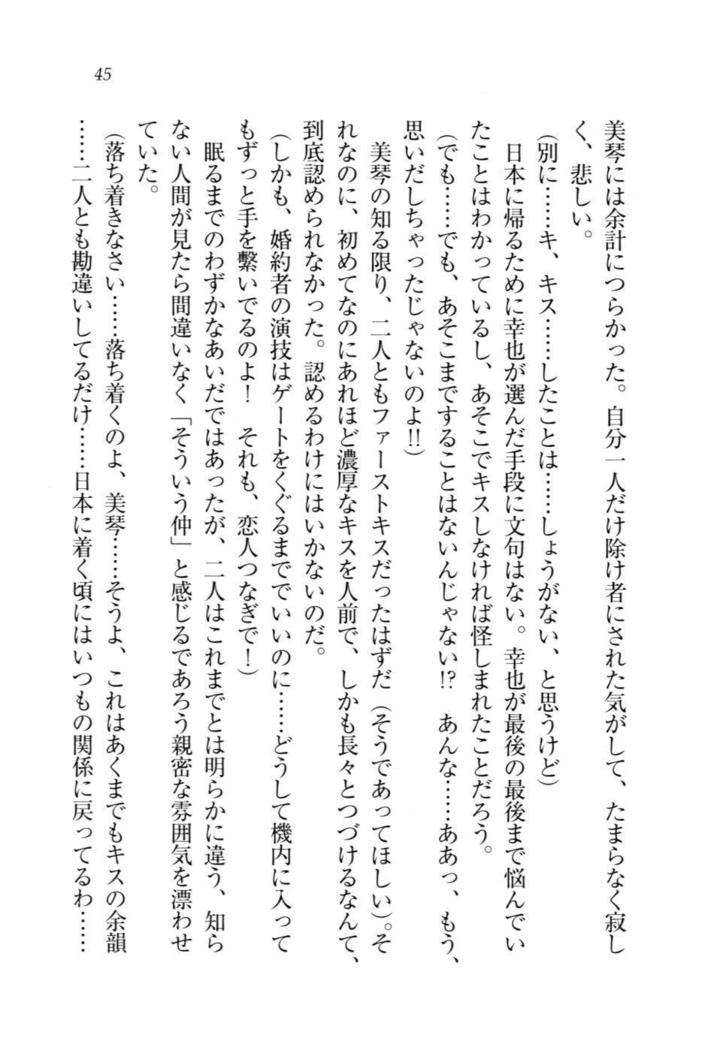 45
美琴には余計につらかった。自分一人だけ除け者にされた気がして、たまらなく寂し
く、悲しい。
（別に……キ、キス……したことは……しょうがない、と思うけど）
　日本に帰るために幸也が選んだ手段に文句はない。幸也が最後の最後まで悩んでい
たことはわかっているし、あそこでキスしなければ怪しまれたことだろう。
（でも……でも、あそこまですることはないんじゃない!?　あんな……ああっ、もう、
思いだしちゃったじゃないのよ!!）
　美琴の知る限り、二人ともファーストキスだったはずだ（そうであってほしい）。そ
れなのに、初めてなのにあれほど濃厚なキスを人前で、しかも長々とつづけるなんて、
到底認められなかった。認めるわけにはいかないのだ。
（しかも、婚約者の演技はゲートをくぐるまででいいのに……どうして機内に入って
もずっと手を繋いでるのよ！　それも、恋人つなぎで！）
　眠るまでのわずかなあいだではあったが、二人はこれまでとは明らかに違う、知ら
ない人間が見たら間違いなく「そういう仲」と感じるであろう親密な雰囲気を漂わせ
ていた。
（落ち着きなさい……落ち着くのよ、美琴……そうよ、これはあくまでもキスの余韻
……二人とも勘違いしてるだけ……日本に着く頃にはいつもの関係に戻ってるわ……